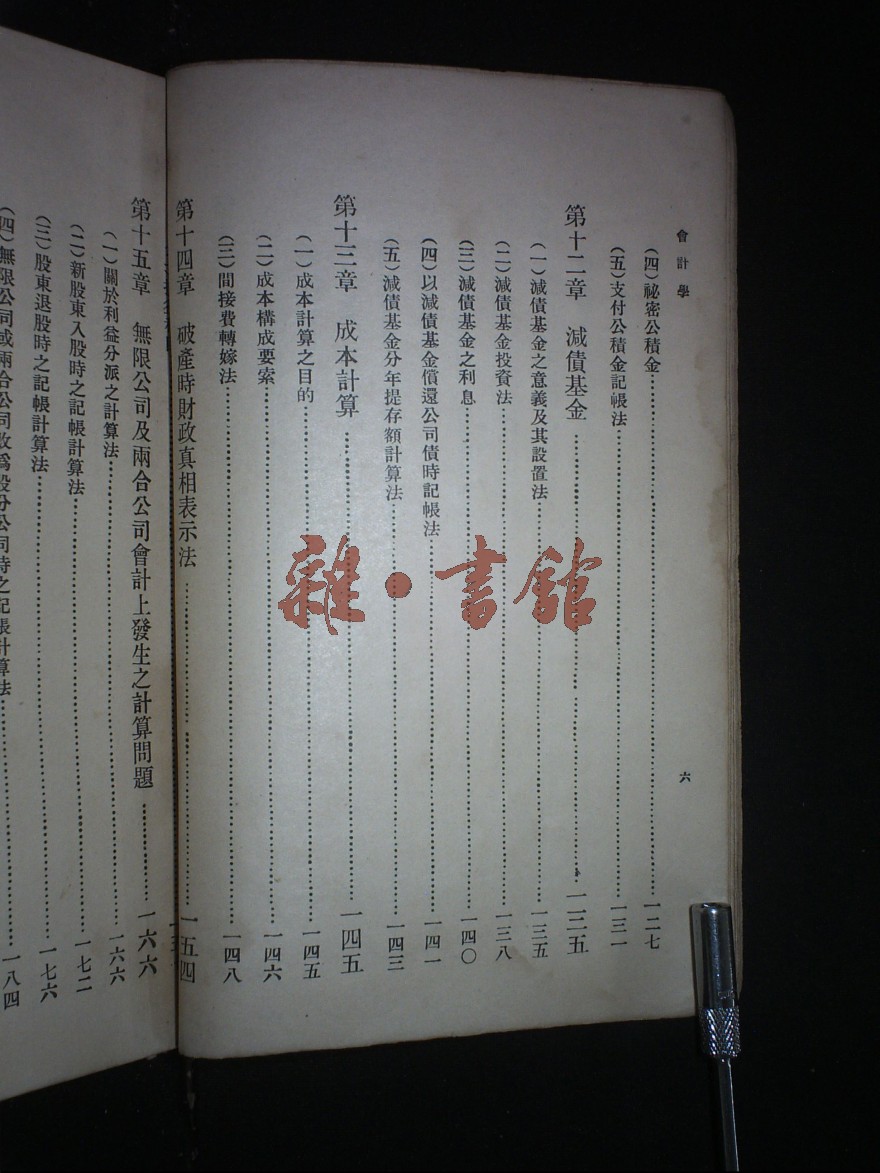 會計學
六
(四)祕密公積金……一二七
(五)支付公積金記帳法……一三一
第十二章　減債基金……一三五
(一)減債基金之意義及其設置法……一三五
(二)減債基金投資法……一三八
(三)減債基金之利息……一四〇
(四)以減債基金償還公司債時記帳法……一四一
(五)減債基金分年提存額計算法……一四三
第十三章　成本計算……一四五
(一)成本計算之目的……一四五
(二)成本構成要索……一四六
(三)間接費轉嫁法……一四八
第十四章　破產時財政真相表示法……一五四
第十五章　無限公司及兩合公司會計上發生之計算問題……一六六
(一)關於利益分派之計算法……一六六
(二)新股東入股時之記帳計算法……一七二
(三)股東退股時之記帳計算法……一七六
(四)無限公司或兩合公司改爲股分公司時之記帳計算法……一八四
雜·書館